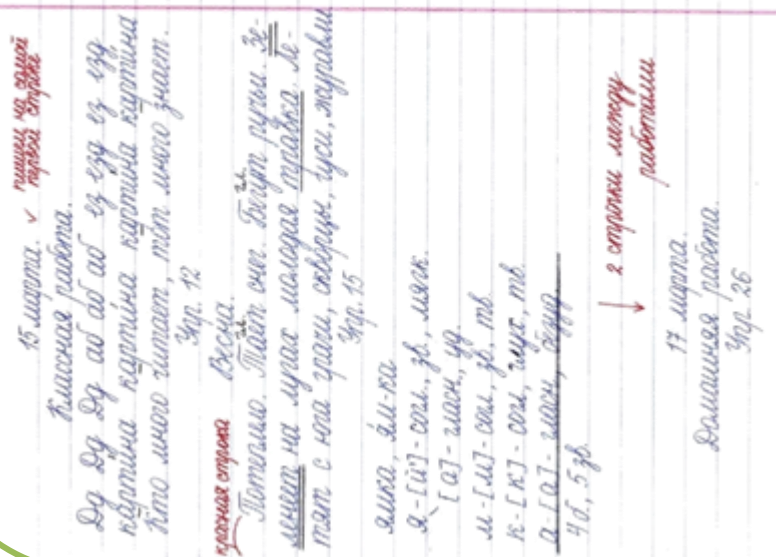 15 марта. пишем на самой первой строке
Классная работа.
Дд Дд Дд аб аб аб ез езд ез езд
картина картина картина картина
Кто много читает, тот много знает.
Упр. 12
красная строка Весна.
Потеплело. Тает снег. Бегут ручьи. Зе-
ленеет на лугах молодая травка. Ле-
тят с юга грачи, скворцы, гуси, журавли
Упр. 15
ямка, ям-ка
я - [й'] - согл., зв., мягк.
[а] - гласн., уд.
м - [м] - согл., зв., тв.
к - [к] - согл., глух., тв.
а - [а] - гласн., безуд.
4 б., 5 зв.
2 строчки между
работами
17 марта.
Домашняя работа.
Упр. 26